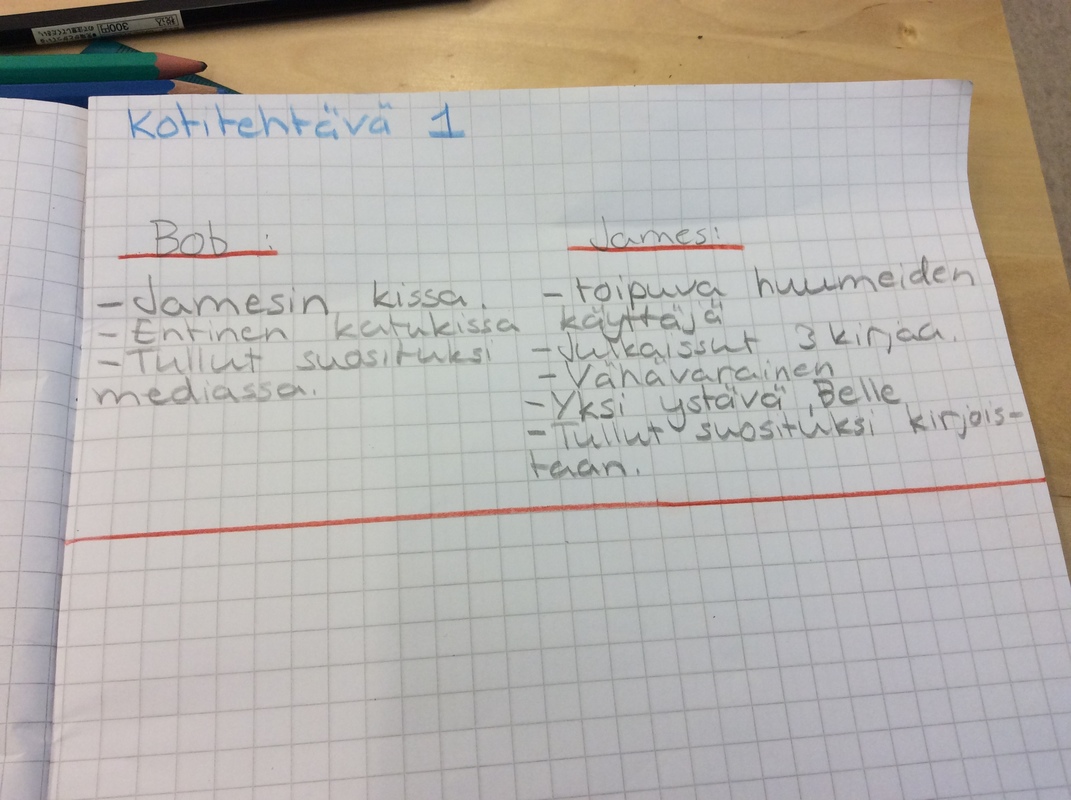 300円
Kotitehtävä 1
Bob :
- Jamesin kissa.
- Entinen katukissa
- Tullut suosituksi
mediassa.
James:
- toipuva huumeiden
käyttäjä
- Julkaissut 3 kirjaa.
- Vähävarainen
- Yksi ystävä, Belle
- Tullut suosituksi kirjois-
taan.